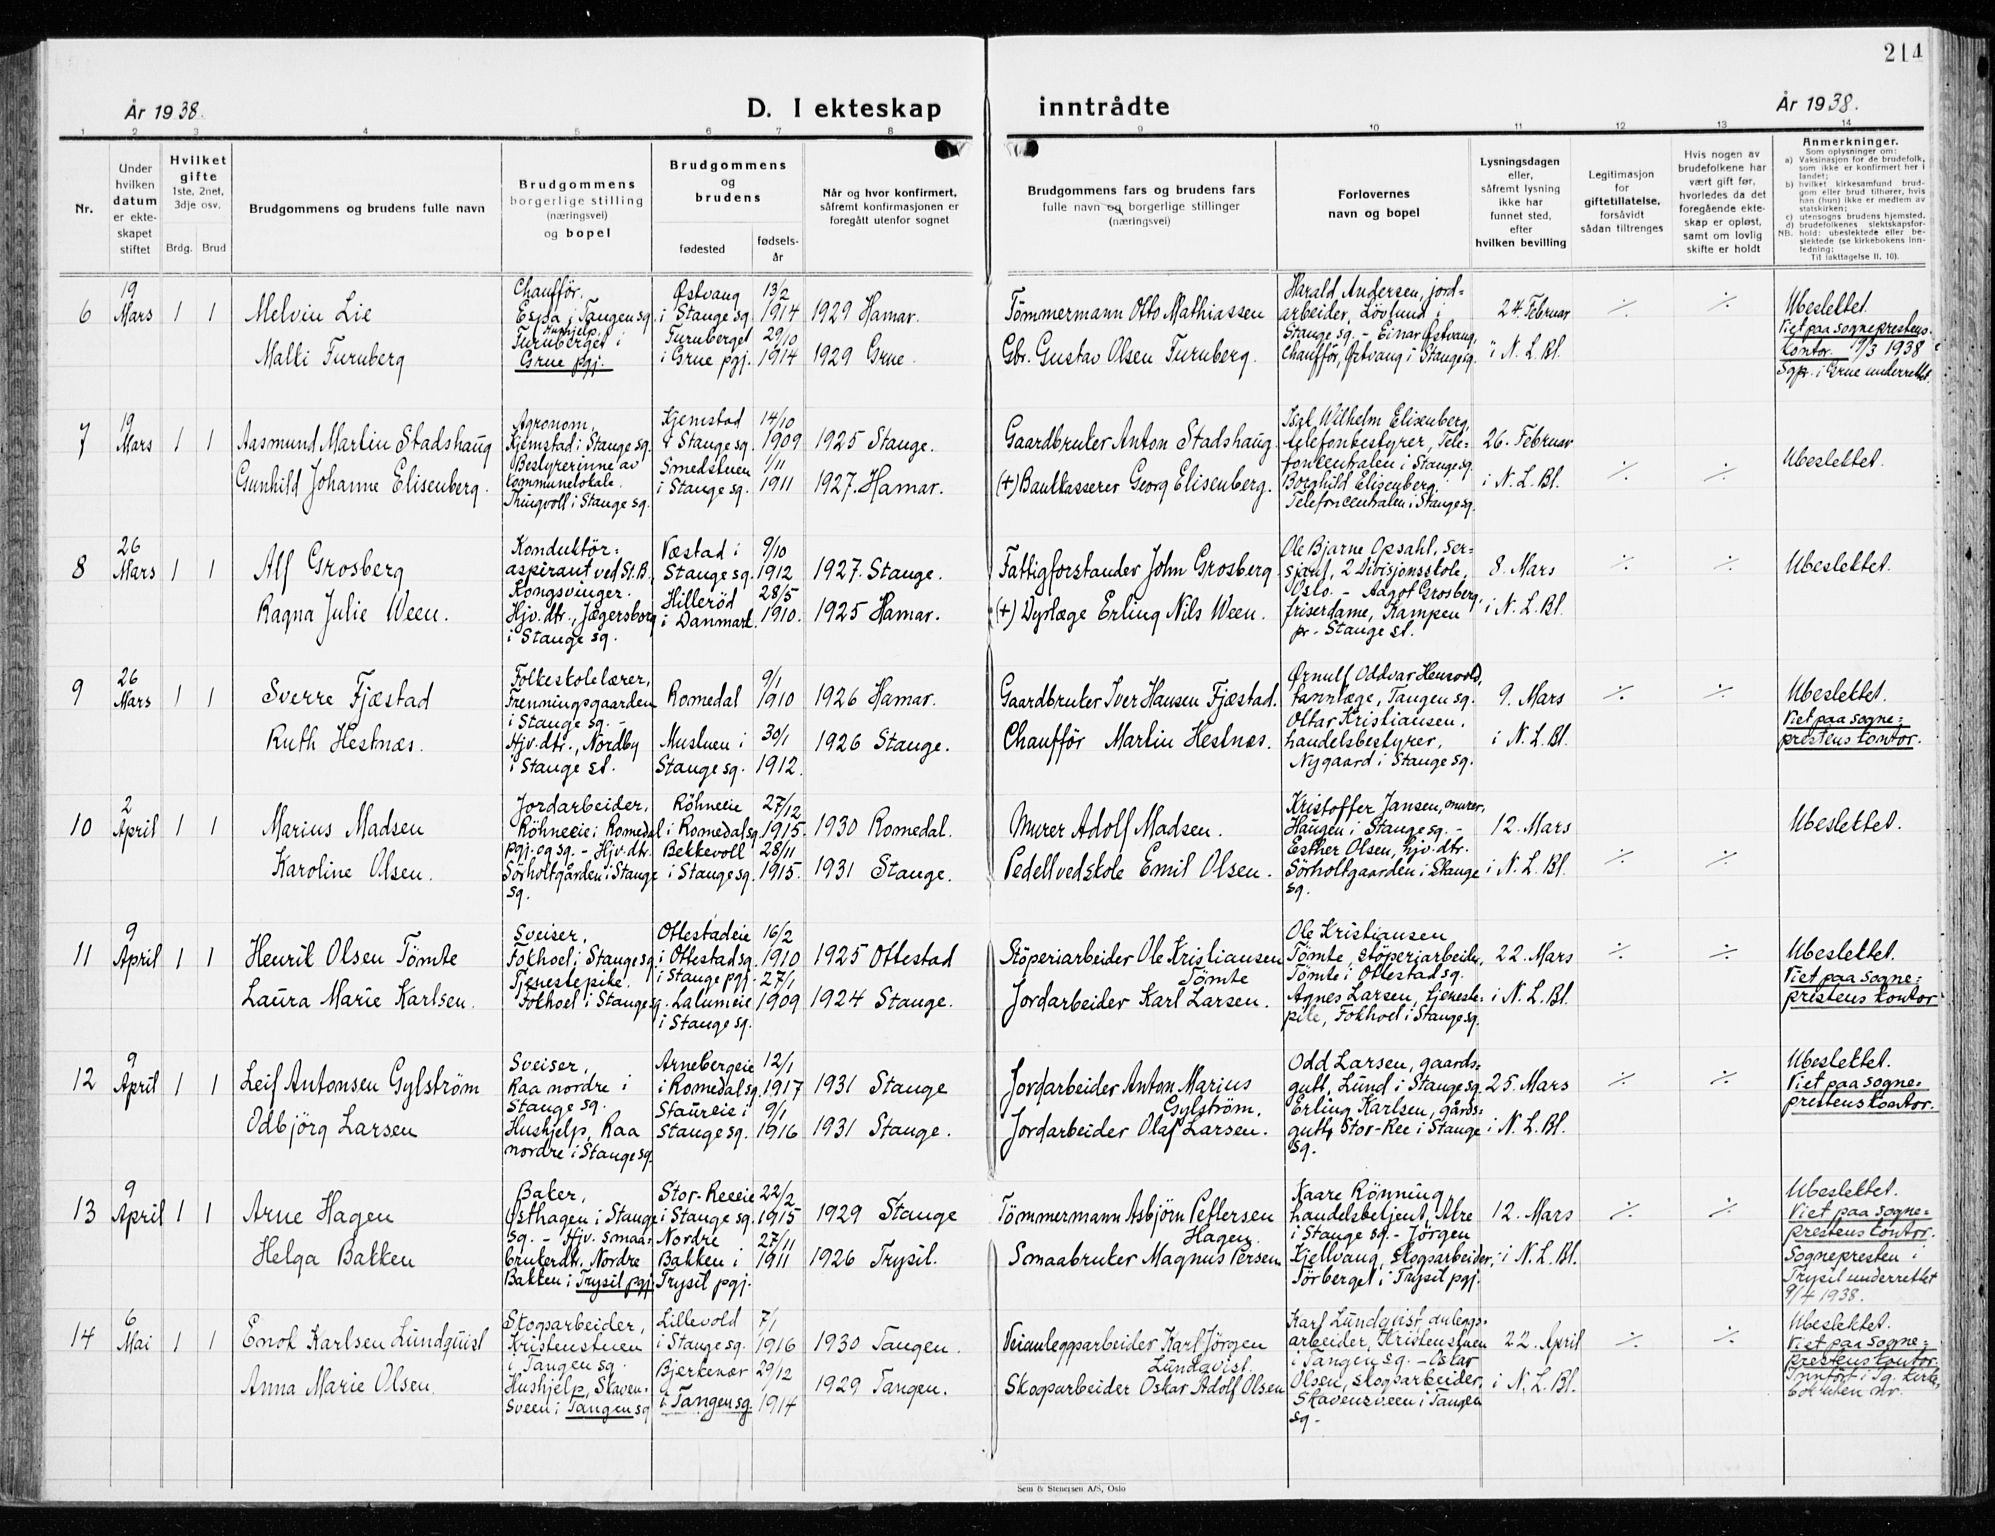 214
År 1938.
D. I ekteskap inntrådte
År 1938.
1 2 3 4 5 6 7 8 9 10 11 12 13 14
Nr.
Under hvilken datum er ekteskapet stiftet
Hvilket gifte
1ste, 2net, 3dje osv.
Brdg. Brud
Brudgommens og brudens fulle navn
Brudgommens borgerlige stilling (næringsvei) og bopel
Brudgommens og brudens
fødested
fødselsår
Når og hvor konfirmert, såfremt konfirmasjonen er foregått utenfor sognet
Brudgommens fars og brudens fars fulle navn og borgerlige stillinger (næringsvei)
Forlovernes navn og bopel
Lysningsdagen eller, såfremt lysning ikke har funnet sted, efter hvilken bevilling
Legitimasjon for giftetillatelse, forsåvidt sådan tiltrenges
Hvis nogen av brudefolkene har vært gift før, hvorledes da det foregående ekteskap er opløst, samt om lovlig skifte er holdt
Anmerkninger.
Som oplysninger om:
a) Vaksinasjon for de brudefolk, som ikke er konfirmert her i landet;
b) hvilket kirkesamfund brudgom eller brud tilhører, hvis han (hun) ikke er medlem av statskirken;
c) utensogns brudens hjemsted.
d) brudefolkenes slektskapsforhold: ubeslektede eller beslektede (se kirkebokens Innledning;
NB.
Til iakttagelse II. 10).
6 19 Mars 1 1
Melvin Lie
Malli Furuberg
Chaufför. Espa i Tangen sg.
Hushjelp, Furuberget i Grue pgj.
Østvang i Stange sg. 13/2 1914
Furuberget i Grue pgj. 29/10 1914
1929 Hamar.
1929 Grue.
Tömmermann Otto Mathiassen
Gbr. Gustav Olsen Furuberg.
Harald Andersen, jordarbeider, Lövlund i Stange sg. - Einar Østvang, Chaufför, Østvang i Stange sg.
24 Februar i N. L. Bl.
Ubeslektet.
Viet paa sogneprestens kontor. 19/3 1938
Sgpr. i Grue underrettet.
7 19 Mars 1 1
Aasmund Martin Stadshaug
Gunhild Johanne Elisenberg.
Agronom, Kjemstad i Stange sg.
Bestyrerinne av kommunelokale. Thingvoll i Stange sg.
Kjemstad i Stange sg. 14/10 1909
Smedstuen i Stange sg. 1/11 1911
1925 Stange.
1927. Hamar.
Gaardbruker Anton Stadshaug
(+) Bankkasserer Georg Elisenberg.
Isak Wilhelm Elisenberg, telefonbestyrer, Telefoncentralen i Stange sg. Borghild Elisenberg. Telefoncentralen i Stange sg.
26. Februar i N. L. Bl.
Ubeslektet.
8 26 Mars 1 1
Alf Grosberg
Ragna Julie Ween.
Konduktör-aspirant ved St.B. Kongsvinger.
Hjv. dtr., Jægersborg i Stange sg.
Væstad i Stange sg. 9/10 1912
Hilleröd i Danmark. 28/5 1910.
1927. Stange.
1925 Hamar.
Fattigforstander John Grosberg
(+) Dyrlæge Erling Nils Ween.
Ole Bjarne Opsahl, sersjant, 2 Divisjonsskole, Oslo. - Aagot Grosberg, friserdame, Kampen pr. Stange st.
8. Mars i N. L. Bl.
Ubeslektet.
9 26 Mars 1 1
Sverre Fjæstad
Ruth Hestnæs.
Folkeskolelærer, Frenningsgaarden i Stange sg. -
Hjv. dtr., Nordby i Stange st.
Romedal 9/1 1910
Mustuen i Stange sg. 30/1 1912.
1926 Hamar.
1926 Stange.
Gaardbruker Iver Hansen Fjæstad.
Chaufför Martin Hestnæs.
Ørnulf Oddvar Hensvold, tannlæge, Tangen sg. Oltar Kristiansen, handelsbestyrer, Nygaard i Stange sg.
9. Mars i N. L. Bl.
Ubeslektet.
Viet paa sogneprestens kontor.
10 2 April 1 1
Marius Madsen
Karoline Olsen.
Jordarbeider, Röhneeie i Romedal pgj. og sg. - Hjv. dtr. Sörholtgården i Stange sg.
Röhneeie i Romedal sg. 27/12 1915.
Bekkevoll i Stange sg. 28/11 1915.
1930 Romedal.
1931 Stange.
Murer Adolf Madsen.
Pedell ved skole Emil Olsen.
Kristoffer Jansen, murer, Haugen i Stange sg. - Esther Olsen, hjv. dtr. Sörholtgaarden i Stange sg.
12. Mars i N. L. Bl.
Ubeslektet.
11 9 April 1 1
Henrik Olsen Tömte
Laura Marie Karlsen.
Sveiser, Fokhoel i Stange sg
Tjenestepike. Fokhoel i Stange sg.
Ottestadeie i Ottestad sg. i Stange pgj. 16/2 1910
Lalumeie i Stange sg. 27/1 1909
1925 Ottestad
1924 Stange.
Stöperiarbeider Ole Kristiansen Tömte
Jordarbeider Karl Larsen.
Ole Kristiansen Tömte, stöperiarbeider, Tömte i Ottestad sg. Agnes Larsen, tjenestepike, Fokhoel i Stange sg.
22. Mars i N. L. Bl.
Ubeslektet.
Viet paa sogneprestens kontor
12 9 April 1 1
Leif Antonsen Gylström
Odbjörg Larsen
Sveiser, Raa nordre i Stange sg.
Hushjelp, Raa nordre i Stange sg.
Arnebergeie i Romedal sg. 12/1 1917
Staureie i Stange sg. 9/1 1916
1931 Stange
1931 Stange.
Jordarbeider Anton Marius Gylström.
Jordarbeider Olaf Larsen.
Odd Larsen, gaardsgutt, Lund i Stange sg. Erling Karlsen, gårdsgutt, Stor-Ree i Stange sg.
25. Mars i N. L. Bl.
Ubeslektet.
Viet paa sogneprestens kontor.
13 9 April 1 1
Arne Hagen
Helga Bakken
Baker, Østhagen i Stange sg. - Hjv. smaabrukerdtr. Nordre Bakken i Trysil pgj.
Stor-Reeeie i Stange sg. 22/2 1915
Nordre Bakken i Trysil pgj. 27/11 1911
1929 Stange
1926 Trysil.
Tömmermann Asbjörn Pettersen Hagen.
Smaabruker Magnus Persen
Kaare Rönning handelsbetjent, Atre i Stange sg. - Jörgen Kjellvang, skogsarbeider, Törberget i Trysil pgj.
12. Mars i N. L. Bl.
Ubeslektet.
Viet paa sogneprestens kontor.
Sognepresten i Trysil underrettet 9/4 1938.
14 6 Mai 1 1
Enok Karlsen Lundquist
Anna Marie Olsen.
Skogsarbeider, Kristenstuen i Tangen sg.
Hushjelp, Skavensveen i Tangen sg
Lillevold i Stange sg. 7/1 1916
Bjerkenær i Tangen sg. 29/12 1914
1930 Tangen.
1929 Tangen.
Veianleggsarbeider Karl Jörgen Lundqvist.
Skogsarbeider Oskar Adolf Olsen
Karl Lundqvist, anleggsarbeider, Kristenstuen i Tangen sg. - Oskar Olsen, skogsarbeider, Skavensveen i Tangen sg.
22. April i N. L. Bl.
Ubeslektet.
Viet paa sogneprestens kontor.
Innfört i Tg. kirkebok uten nr.
Sem & Stenersen A/S, Oslo